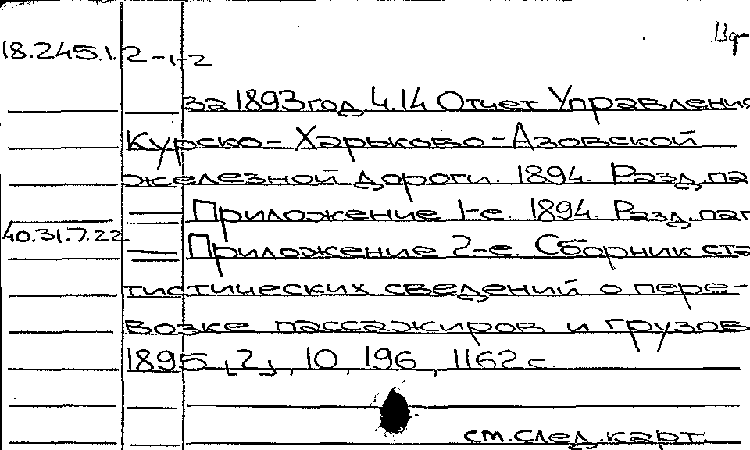 18.245.1.2-1,2
за 1893 год Ч.14 Отчет Управления
Курско-Харьково-Азовской
железной дороги. 1894. Разд.па
Приложение 1-е. 1894. Разд.паг
40.31.7.22 Приложение 2-е Сборник ста
тистических сведений о пере-
возке пассажиров и грузов
1895, [2], 10, 196, 1162 с.
см.след.карт.